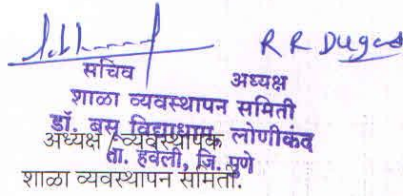 R R Dugad
सचिव
अध्यक्ष
शाळा व्यवस्थापन समिती
डॉ. बसू विद्याधाम, लोणीकंद
अध्यक्ष / व्यवस्थापक
ता. हवेली, जि. पुणे
शाळा व्यवस्थापन समिती.